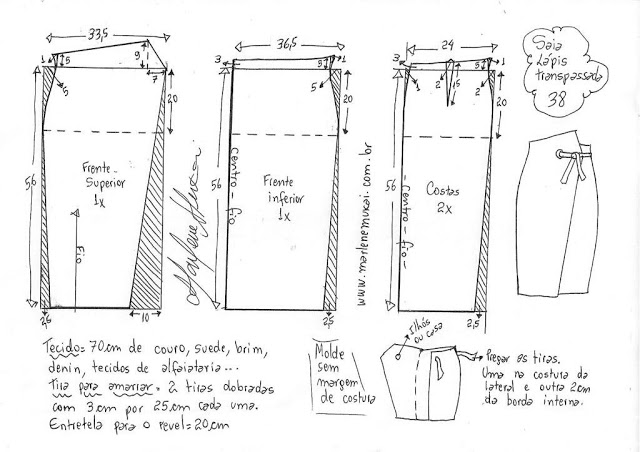 33,5
1
5
9
7
1,5
20
56
Frente
Superior
1x
Fio
2,5
10
Marlene Mukai
36,5
3
5
1
5
20
56
centro-fio
Frente
inferior
1x
2,5
www.marlenemukai.com.br
24
3
2
15
5
1
2
20
56
Centro-fio
Costas
2x
2,5
Saia
Lápis
transpassada
38
Tecido= 70cm de couro, suede, brim,
denin, tecidos de alfaiataria...
Tira para amarrar= 2 tiras dobradas
com 3cm por 25cm cada uma.
Entretela para o revel=20cm
Molde
sem
margem
de costura
Ilhós
ou casa
Pregar as tiras.
Uma na costura da
lateral e outra 2cm
da borda interna.